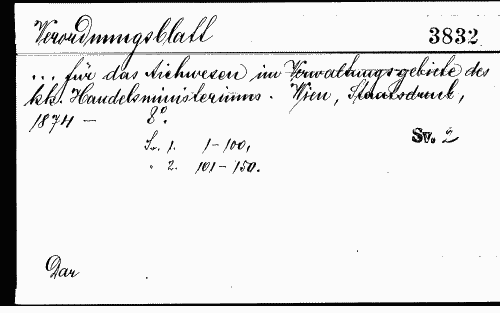 Verordnungsblatt 3832
... für das Aichwesen im Verwaltungsgebiete des
kk. Handelsministeriums. Wien, Staatsdruck,
1874 — 8°.
Sv. 1. 1–100,
" 2. 101–150.
Sv. 2
Dar